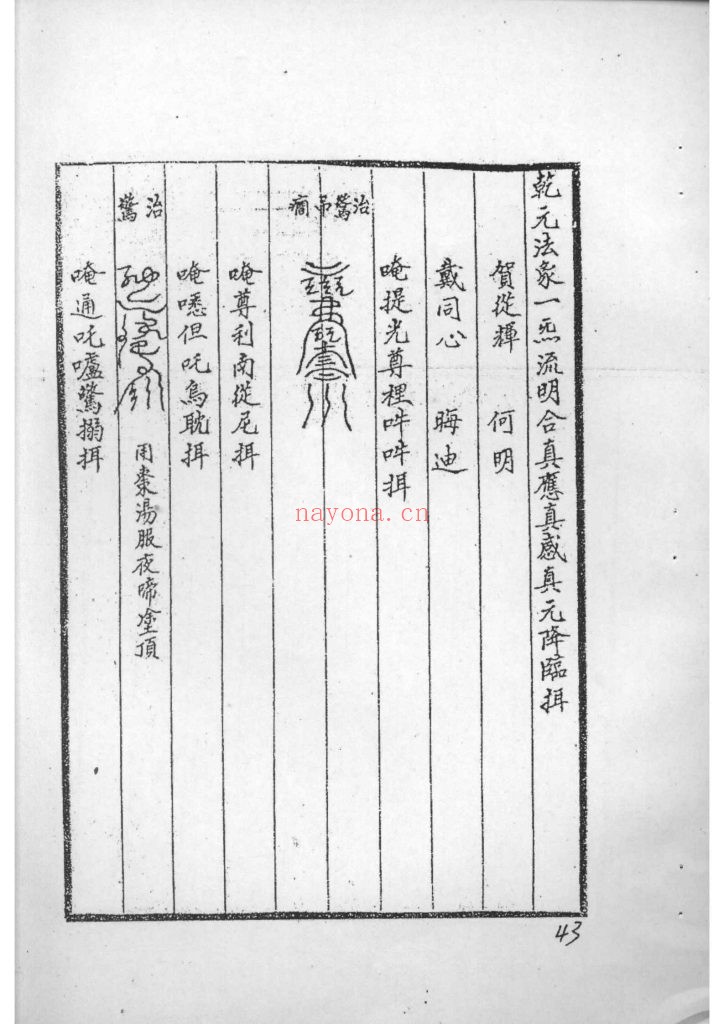 乾元法象一炁流明合真應真感真元降臨挕
賀從輝 何明
戴同心 晦迪
唵提光尊裡吽吽挕
治驚吊癇
唵尊利南從尼挕
唵噁但吒烏耽挕
治驚
用棗湯服夜啼塗頂
唵通吒嚧驚搦挕
nayona.cn
43